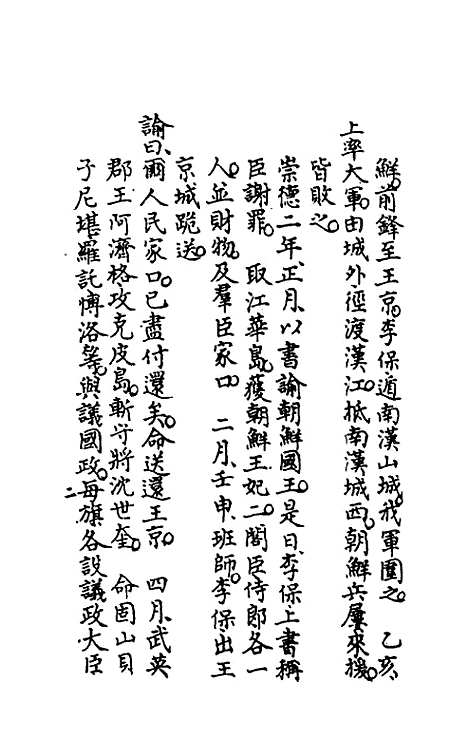 鮮。前鋒至王京。李保遁南漢山城。我軍圍之。　乙亥、
上率大軍。由城外徑渡漢江。抵南漢城西。朝鮮兵屢來援。
皆敗之。
崇德二年、正月、以書諭朝鮮國王。是日、李保上書稱
臣謝罪。　取江華島。獲朝鮮王妃。二閣臣侍郎各一
人。並財物。及羣臣家口。　二月、壬申、班師。李保出王
京城跪送。
諭曰、爾人民家口。已盡付還矣。命送還王京。　四月、武英
郡王阿濟格攻克皮島。斬守將沈世奎。　命固山貝
子尼堪羅託愽洛等。與議國政。每旗各設議政大臣
二